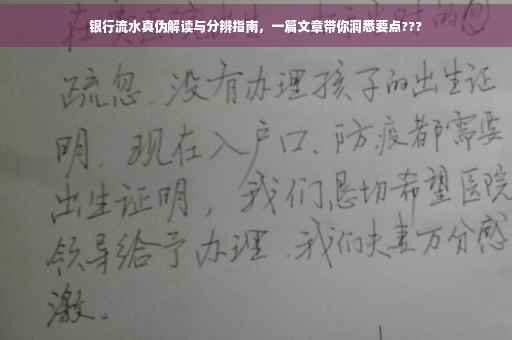 银行流水真伪解读与分辨指南，一篇文章带你洞悉要点???
疏忽、没有办理孩子的出生证
明、现在入户口、防疫都需要
出生证明，我们恳切希望医院
领导给予办理、我们夫妻万分感
激。